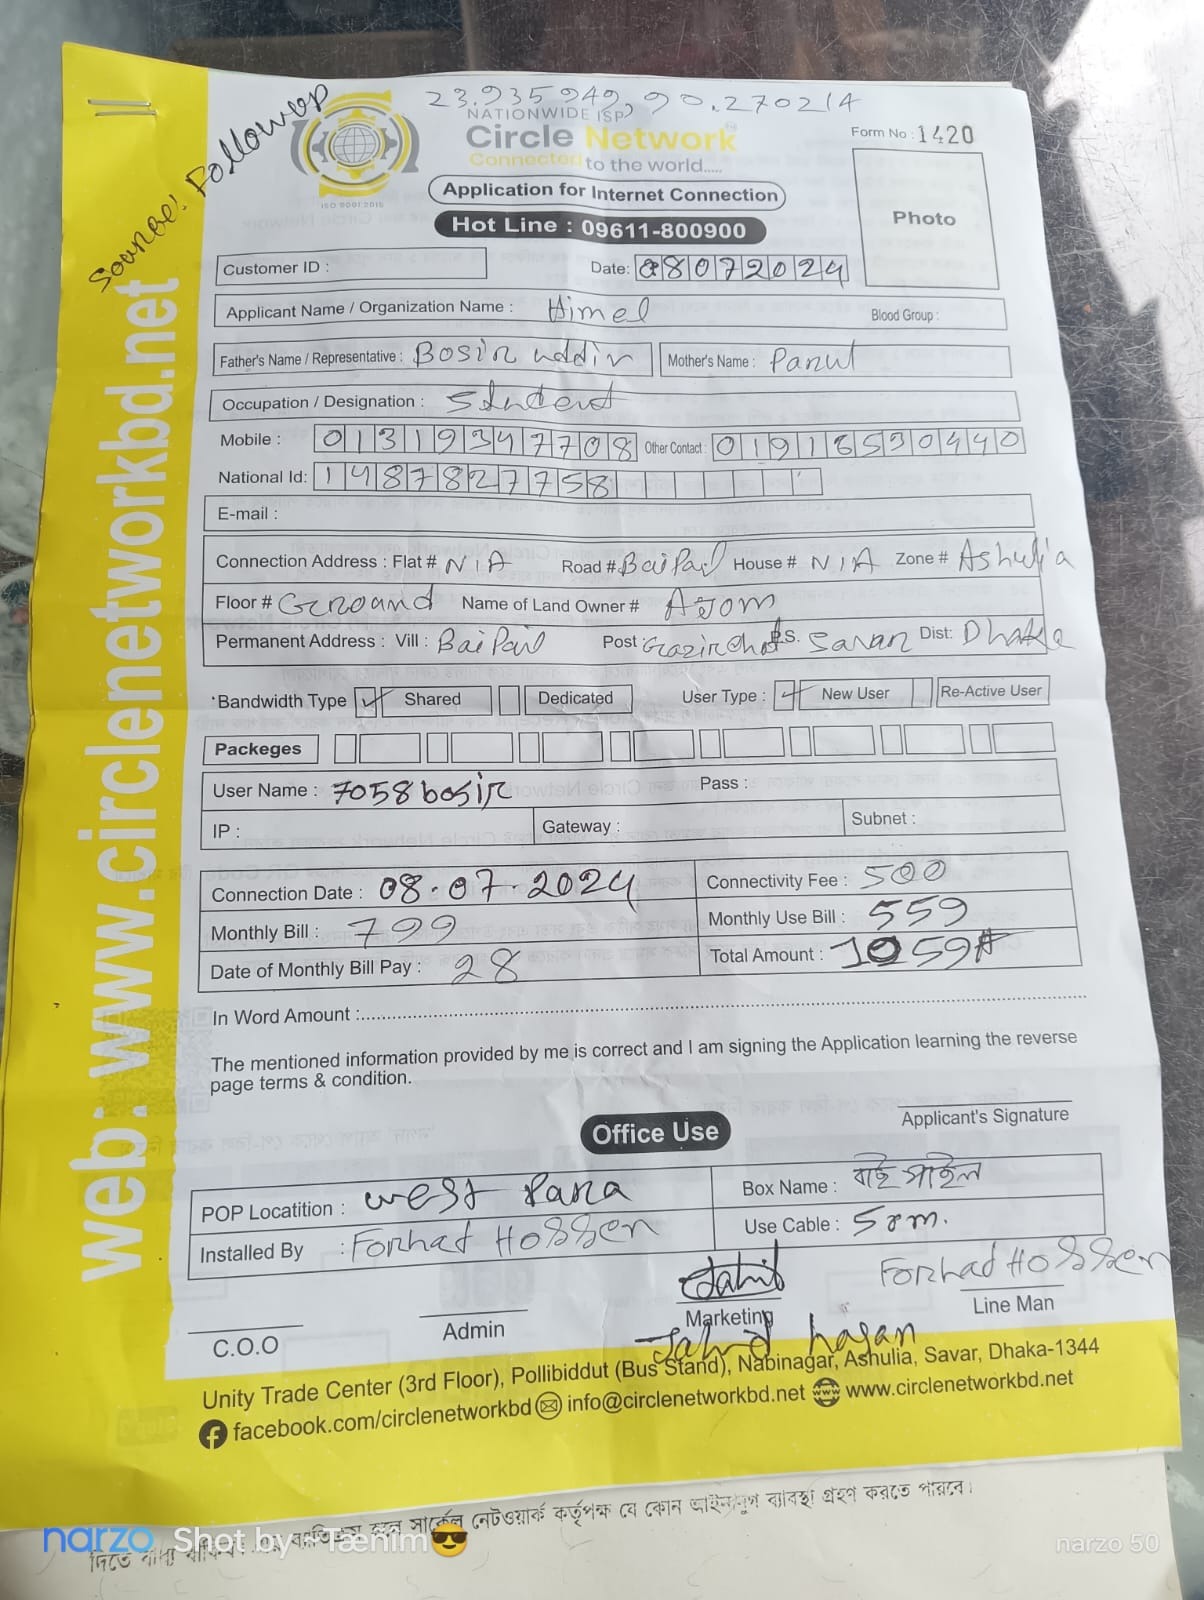 Source: Followup
23.935949, 90.270214
NATIONWIDE ISP
Circle Network
Connected to the world.....
ISO 9001:2015
Form No : 1420
Application for Internet Connection
Photo
Hot Line : 09611-800900
Customer ID :
Date: 08072024
Applicant Name / Organization Name : Himel Blood Group :
Father's Name / Representative : Bosir uddin Mother's Name : Parul
Occupation / Designation : Student
Mobile : 01319347708 Other Contact : 01916530440
National Id: 1487827758
E-mail :
Connection Address : Flat # N/A Road # Baipail House # N/A Zone # Ashulia
Floor # Ground Name of Land Owner # Azom
Permanent Address : Vill : Baipail Post : Gazirchat P.S. Savar Dist: Dhaka
*Bandwidth Type ✓ Shared Dedicated User Type : ✓ New User Re-Active User
Packeges
User Name : 7058bosir Pass :
IP : Gateway : Subnet :
Connection Date : 08.07.2024 Connectivity Fee : 500
Monthly Bill : 799 Monthly Use Bill : 559
Date of Monthly Bill Pay : 28 Total Amount : 1059
In Word Amount :
The mentioned information provided by me is correct and I am signing the Application learning the reverse
page terms & condition.
Applicant's Signature
Office Use
POP Locatition : west Para Box Name : বাই পাইল
Installed By : Forhad Hossen Use Cable : 50m.
Jahid Forhad Hossen
C.O.O Admin Marketing Line Man
Jahid hasan
Unity Trade Center (3rd Floor), Pollibiddut (Bus Stand), Nabinagar, Ashulia, Savar, Dhaka-1344
facebook.com/circlenetworkbd info@circlenetworkbd.net www.circlenetworkbd.net
web: www.circlenetworkbd.net
সার্কেল নেটওয়ার্ক কর্তৃপক্ষ যে কোন আইনানুগ ব্যাবস্থা গ্রহণ করতে পারবে।
দিতে
narzo Shot by - Tænim😎
narzo 50